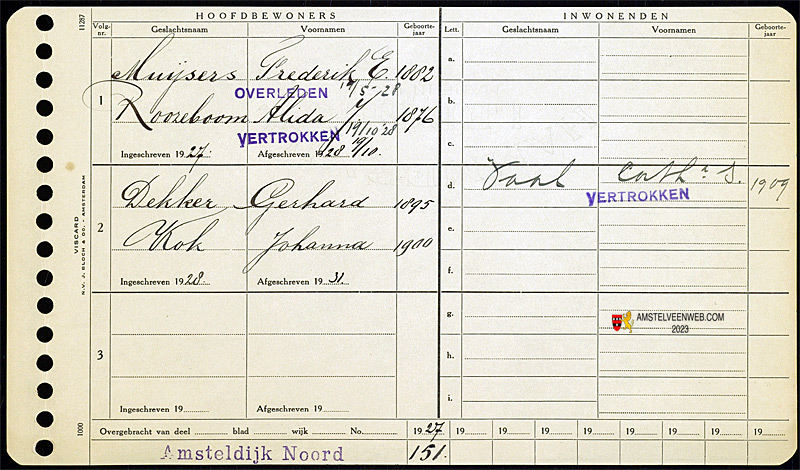 HOOFDBEWONERS
INWONENDEN
Volg-nr. Geslachtsnaam Voornamen Geboorte-jaar
Lett. Geslachtsnaam Voornamen Geboorte-jaar
11287
1
Muijsers Frederik E. 1882
OVERLEDEN 19/5-28
Rooseboom Alida 1876
VERTROKKEN 19/10 28
Ingeschreven 1927. Afgeschreven 1928 19/10.
a.
b.
c.
2
Dekker Gerhard 1895
Kok Johanna 1900
Ingeschreven 1928. Afgeschreven 19 31.
d. Cath. 1909
VERTROKKEN
e.
f.
3
Ingeschreven 19 Afgeschreven 19
g.
h.
i.
AMSTELVEENWEB.COM
2023
VISCARD
N.V. J. BLOCH & CO. - AMSTERDAM
1000
Overgebracht van deel blad wijk No. 1927 19 19 19 19 19 19 19 19
Amsteldijk Noord 151.